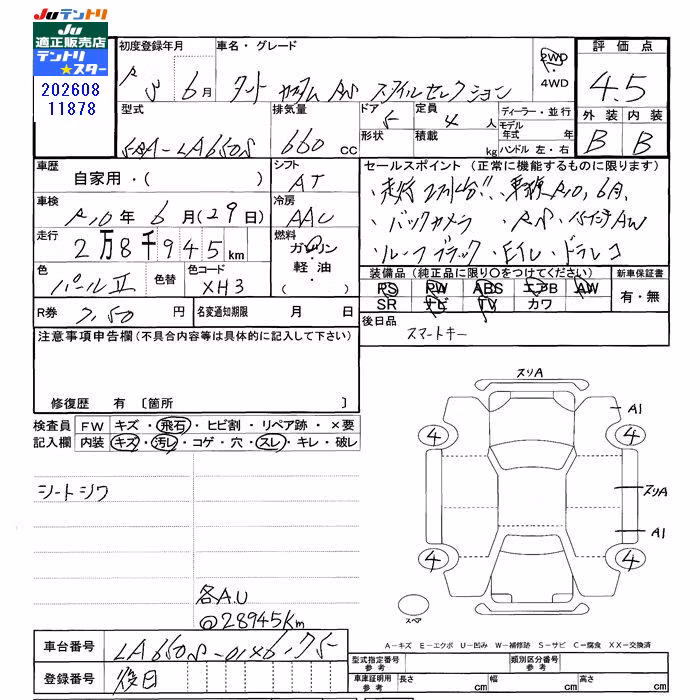 Juテントリ
Ju
適正販売店
テントリ
★スター
202608
11878
初度登録年月
R 5 年 6 月
車名・グレード
タント カスタム RS スタイルセレクション
2WD
・
4WD
評価点
4.5
外装 内装
B B
型式
5BA-LA650S
排気量
660 cc
ドア 5
形状
定員 4 人
積載 kg
ディーラー・並行
モデル年式 年
ハンドル 左・右
車歴
自家用・( )
シフト
AT
車検
R10年 6月(29日)
冷房
AAC
走行
2万8千945 km
燃料
ガソリン
軽油
( )
色
パールⅡ
色替
色コード
XH3
R券 7,50 円
名変通知期限 月 日
セールスポイント(正常に機能するものに限ります)
・車検R10,6月
・バックカメラ
・ルーフブラック・Eイレ・ドラレコ
装備品(純正品に限り○をつけてください)
PS PW ABS エアB AW
SR ナビ TV カワ
新車保証書
有・無
後日品
スマートキー
注意事項申告欄(不具合内容等は具体的に記入して下さい)
修復歴 有〔箇所 〕
検査員
記入欄
FW キズ・飛石・ヒビ割・リペア跡・×要
内装 キズ・汚レ・コゲ・穴・スレ・キレ・破レ
シートシワ
各A.U
@28945Km
スリA
A1
4
4
スリA
A1
4
4
スペア
A-キズ E-エクボ U-凹み W-補修跡 S-サビ C-腐食 XX-交換済
車台番号 LA650S-01X6,75
登録番号 後日
型式指定番号
参考
類別区分番号
参考
車庫証明用
参考
長さ cm
幅 cm
高さ cm